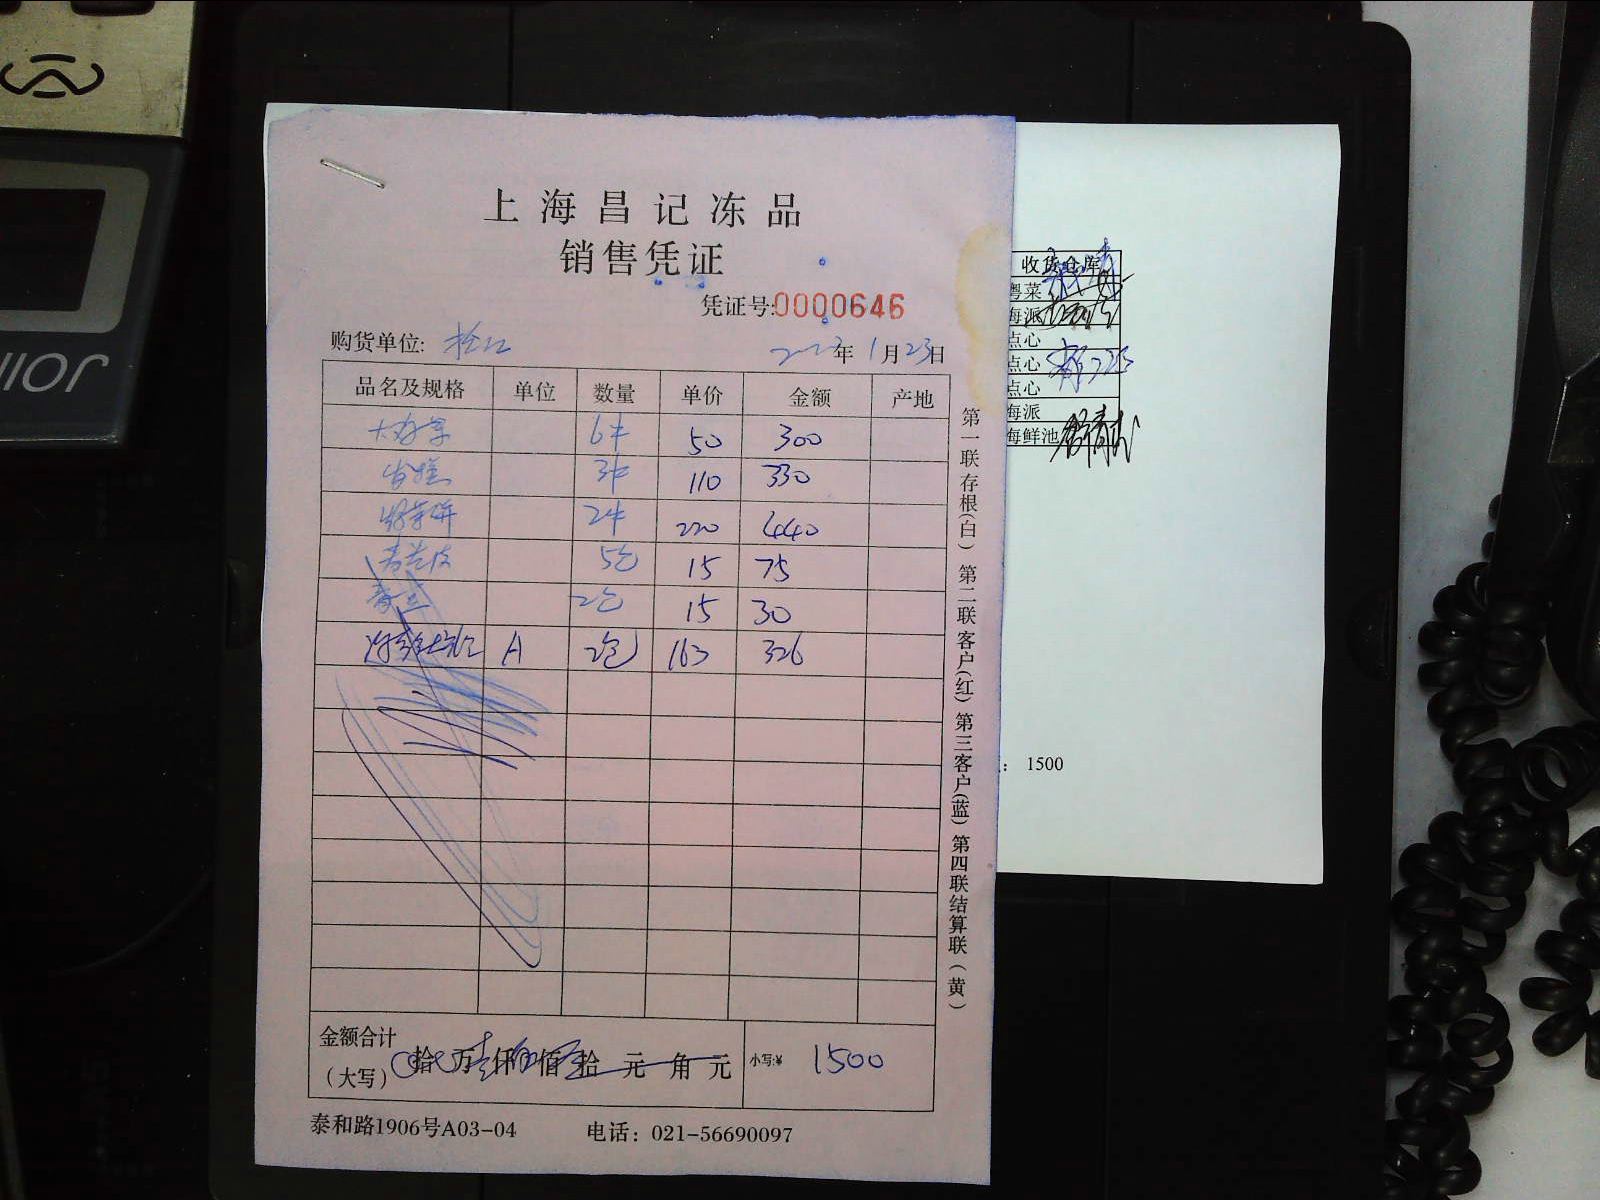 上海昌记冻品
销售凭证
凭证号:0000646
购货单位: 松江 2023年1月23日
品名及规格 单位 数量 单价 金额 产地
6件 50 300
3件 110 330
2件 220 440
5包 15 75
2包 15 30
A 2包 163 326
金额合计
(大写) 拾 万 仟 佰 拾 元 角 元 小写:¥ 1500
泰和路1906号A03-04 电话：021-56690097
第一联存根(白) 第二联客户(红) 第三客户(蓝) 第四联结算联(黄)
收货仓库
粤菜
海派
点心
点心
点心
海派
海鲜池
: 1500
JOII